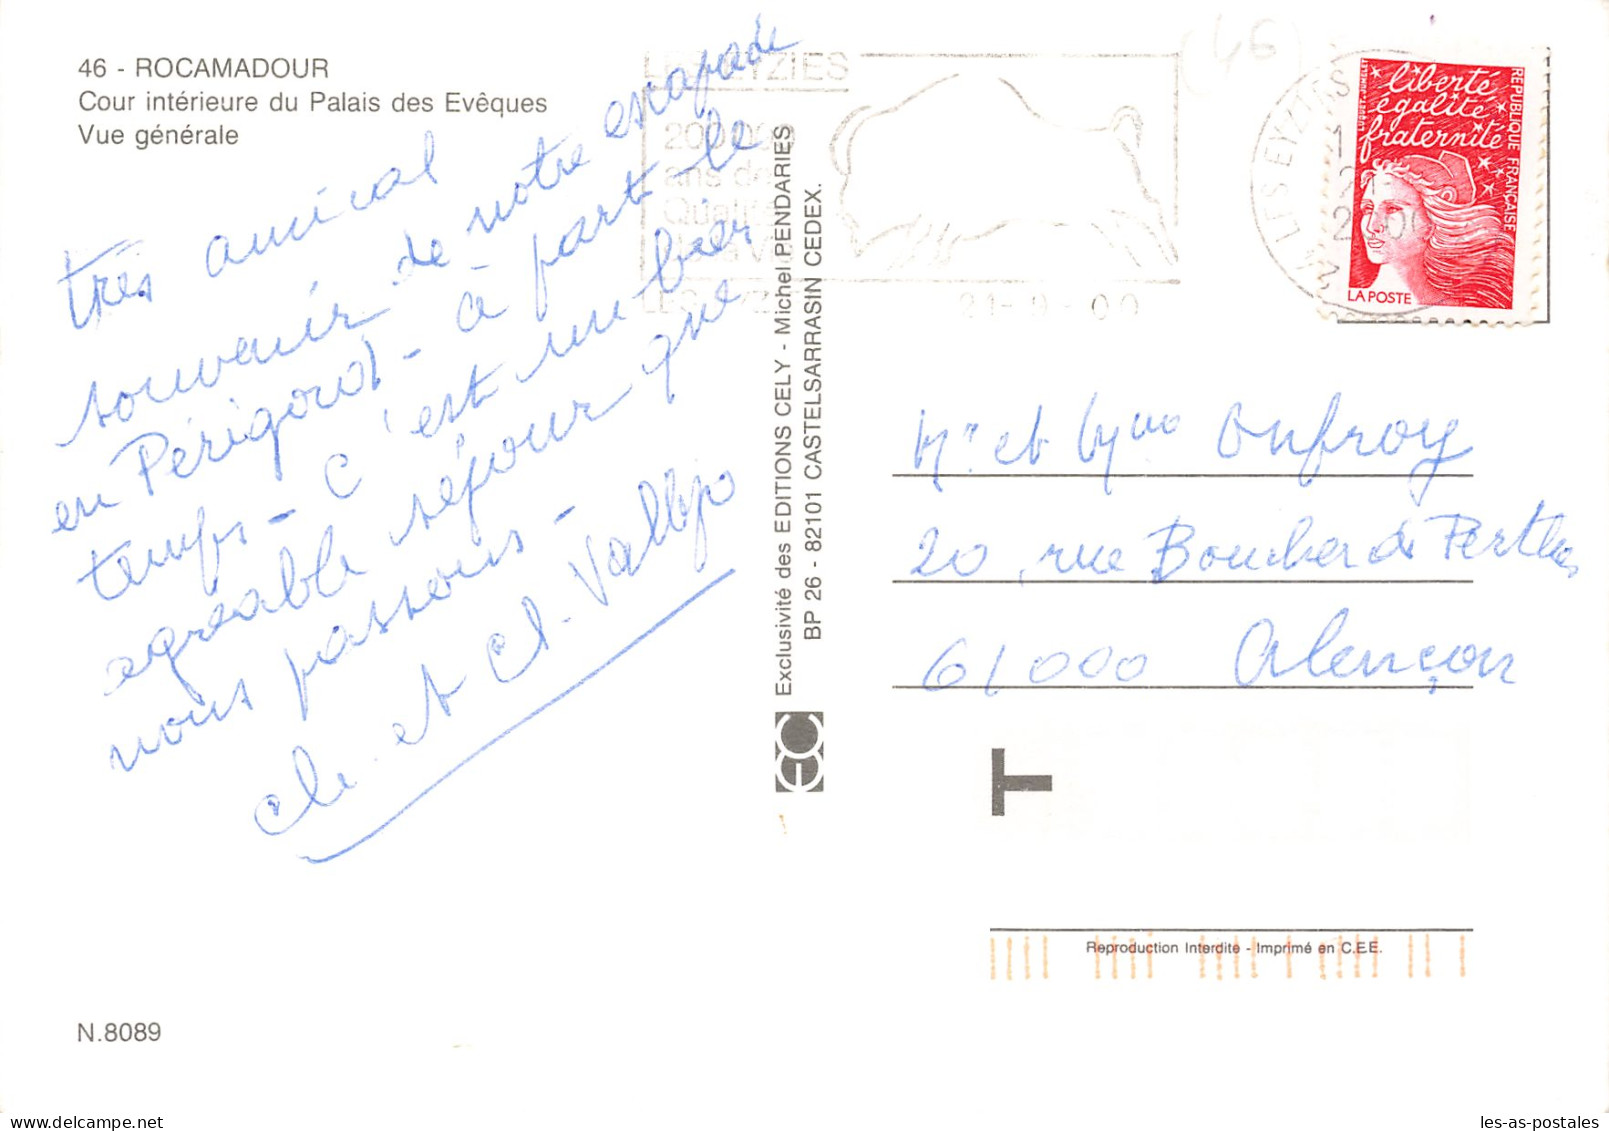 46 - ROCAMADOUR
Cour intérieure du Palais des Evêques
Vue générale
très amical
souvenir de notre escapade
en Périgord - à part le
temps - C'est un bien
agréable séjour que
nous passons -
et Cl. Vallejo
N.8089
Exclusivité des EDITIONS CELY - Michel PENDARIES
BP 26 - 82101 CASTELSARRASIN CEDEX.
EC
LES EYZIES
200 000
ans de
Qualité
de la Vie
LES EYZIES
21-9-00
46
LES EYZIES
21
2000
24
liberté
égalité
fraternité
RÉPUBLIQUE FRANÇAISE
LUQUET-JUMELET
LA POSTE
Mr et Mme Onfroy
20, rue Boucher de Perthes
61000 Alençon
T
Reproduction Interdite - Imprimé en C.E.E.
delcampe.net
les-as-postales